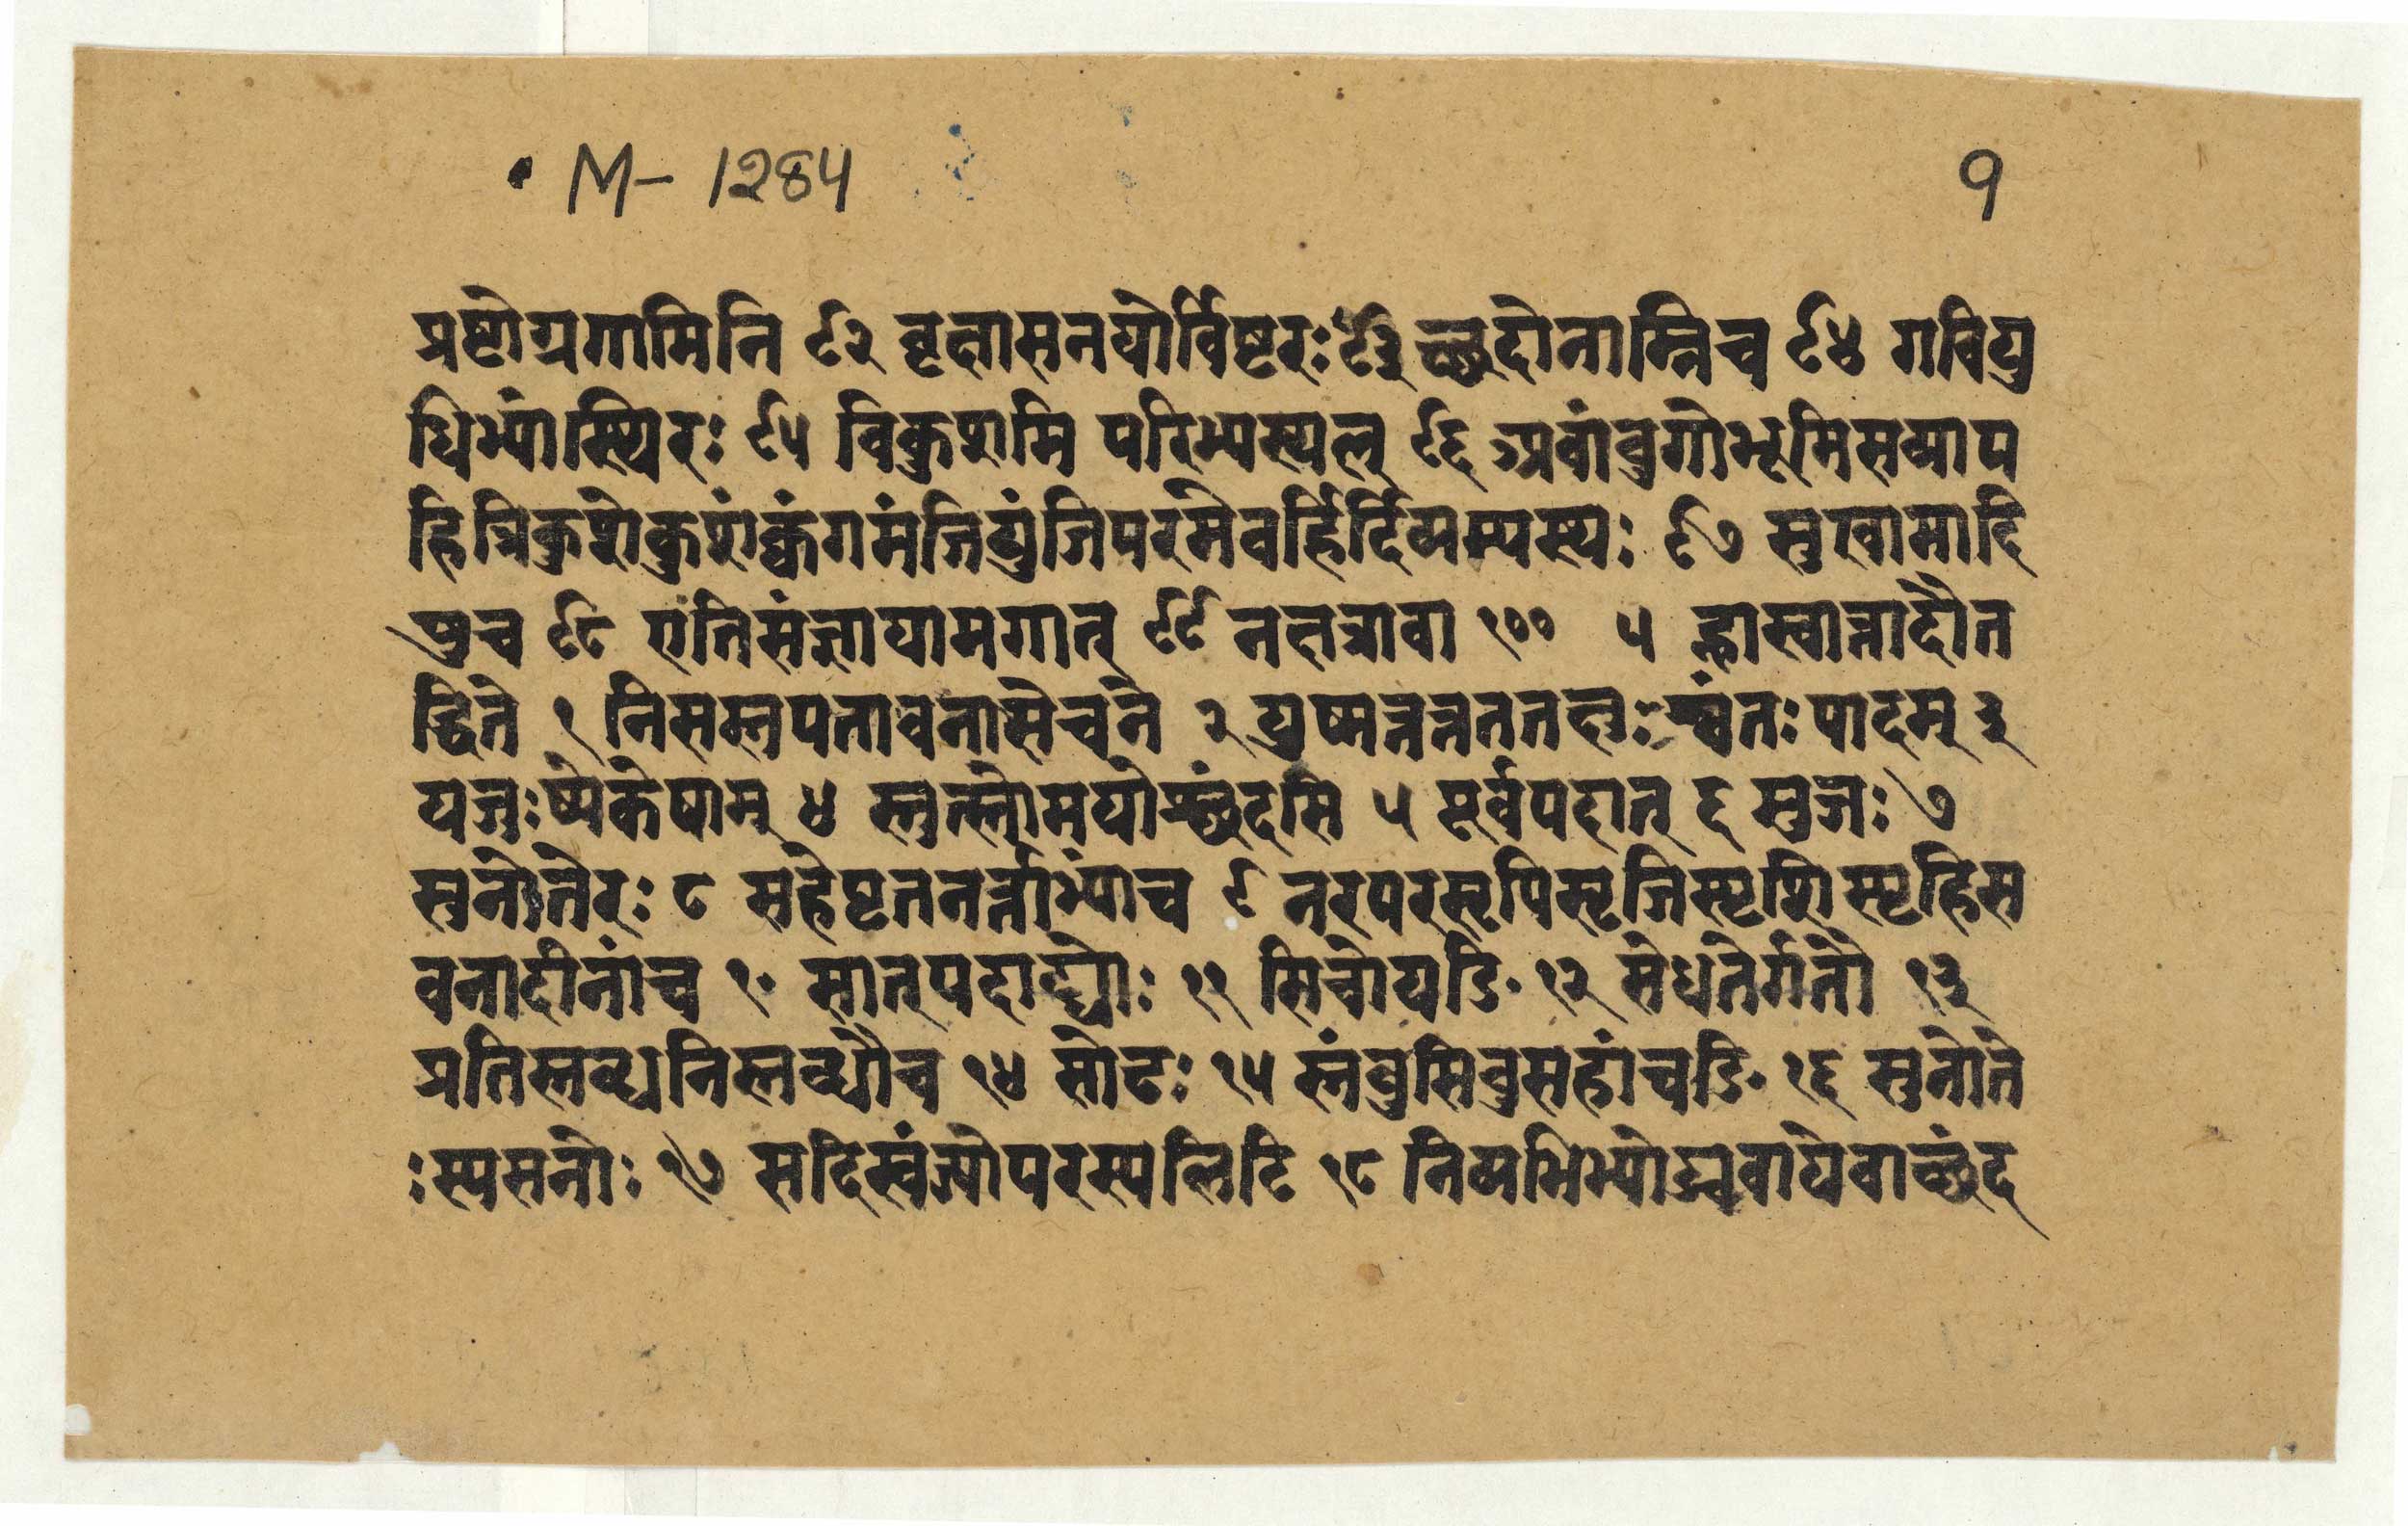 M- 1284
१
प्रष्टोग्रगामिनि ९२ वृक्षासनयोर्विष्टरः ९३ च्छंदोनाम्निच ९४ गवियु
धिभ्यांस्थिरः ९५ विकुशमि परिभ्यस्थल् ९६ अवांवुगोभूमिसव्याप
हित्रिकुशेकुशंक्वंगमंजिपुंजिपरमेवर्हिर्दिव्यग्न्यस्थः ९७ सुखामादि
षुच ९८ एतिसंज्ञायामगात् ९९ नक्षत्राद्वा १०० ५ ह्रास्वात्तादौत
द्धिते १ निसस्तपतावनासेवने २ युष्मत्तत्ततक्षुःष्वंतः पादम् ३
यजुःष्येकेषाम् ४ स्तुतस्तोमयोश्छंदसि ५ पूर्वपदात् ६ सुञः ७
सुनोतेरः ८ सहेष्टतनर्त्ताभ्यांच ९ नरपरसृपिसृजिस्पृशिस्पृहिस
वनादीनांच १० सात्पदाद्योः ११ सिचोयङि १२ सेधतेर्गतौ १३
प्रतिस्तब्धनिस्तब्धौच १४ सोढः १५ स्तंवुसिवुसहांचङि १६ सुनोते
ःस्यसनोः १७ सदिस्वंज्योपरस्यलिटि १८ निव्यभिभ्योड्ववायेवाच्छंद